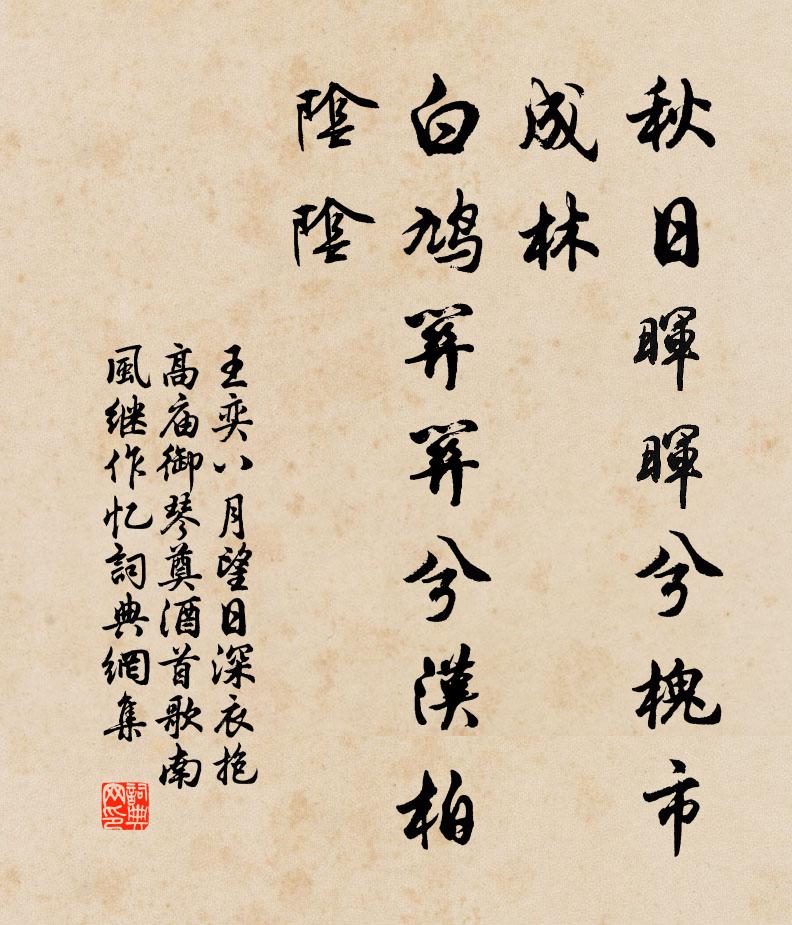 秋日暉暉兮槐市
成林
白鸠兮漢柏
陰陰
王奕八月望日深衣抱
高庙御琴奠酒首歌南
風继作忆詞典網集
詞典
网印